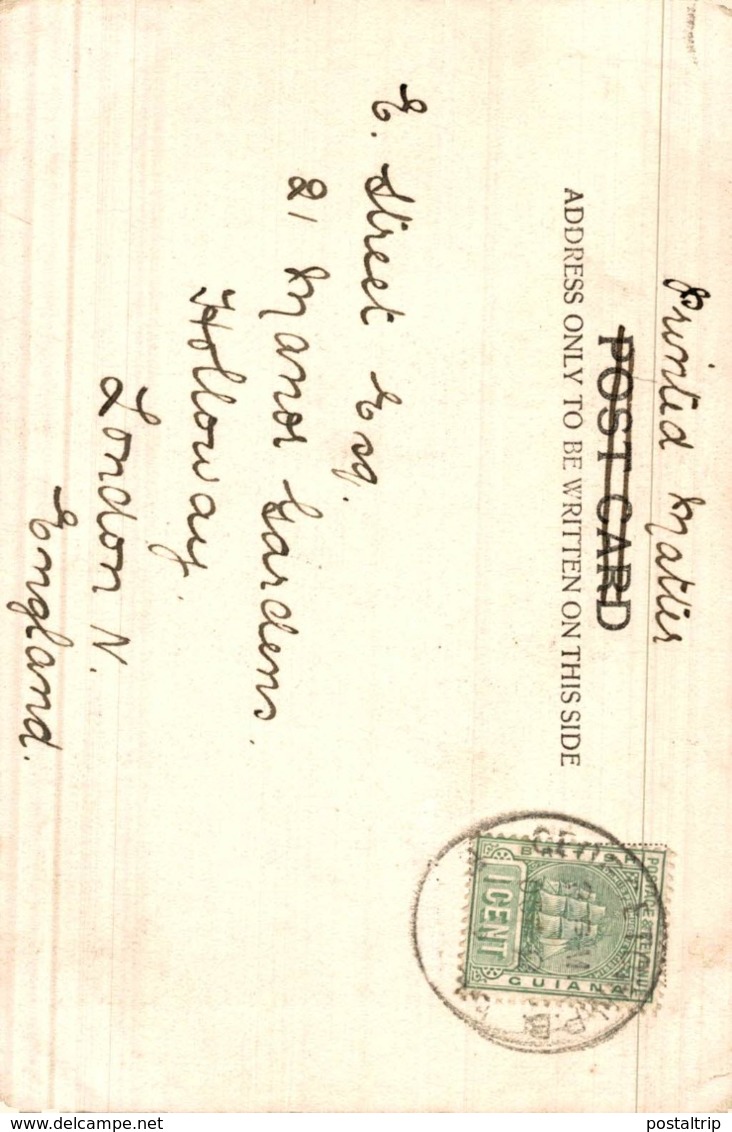 Printed Matter
POST CARD
ADDRESS ONLY TO BE WRITTEN ON THIS SIDE
POSTAGE & REVENUE
BRITISH
GUIANA
1 CENT
E. Street Esq.
21 Manor Gardens.
Holloway.
London N.
England.
delcampe.net
postaltrip